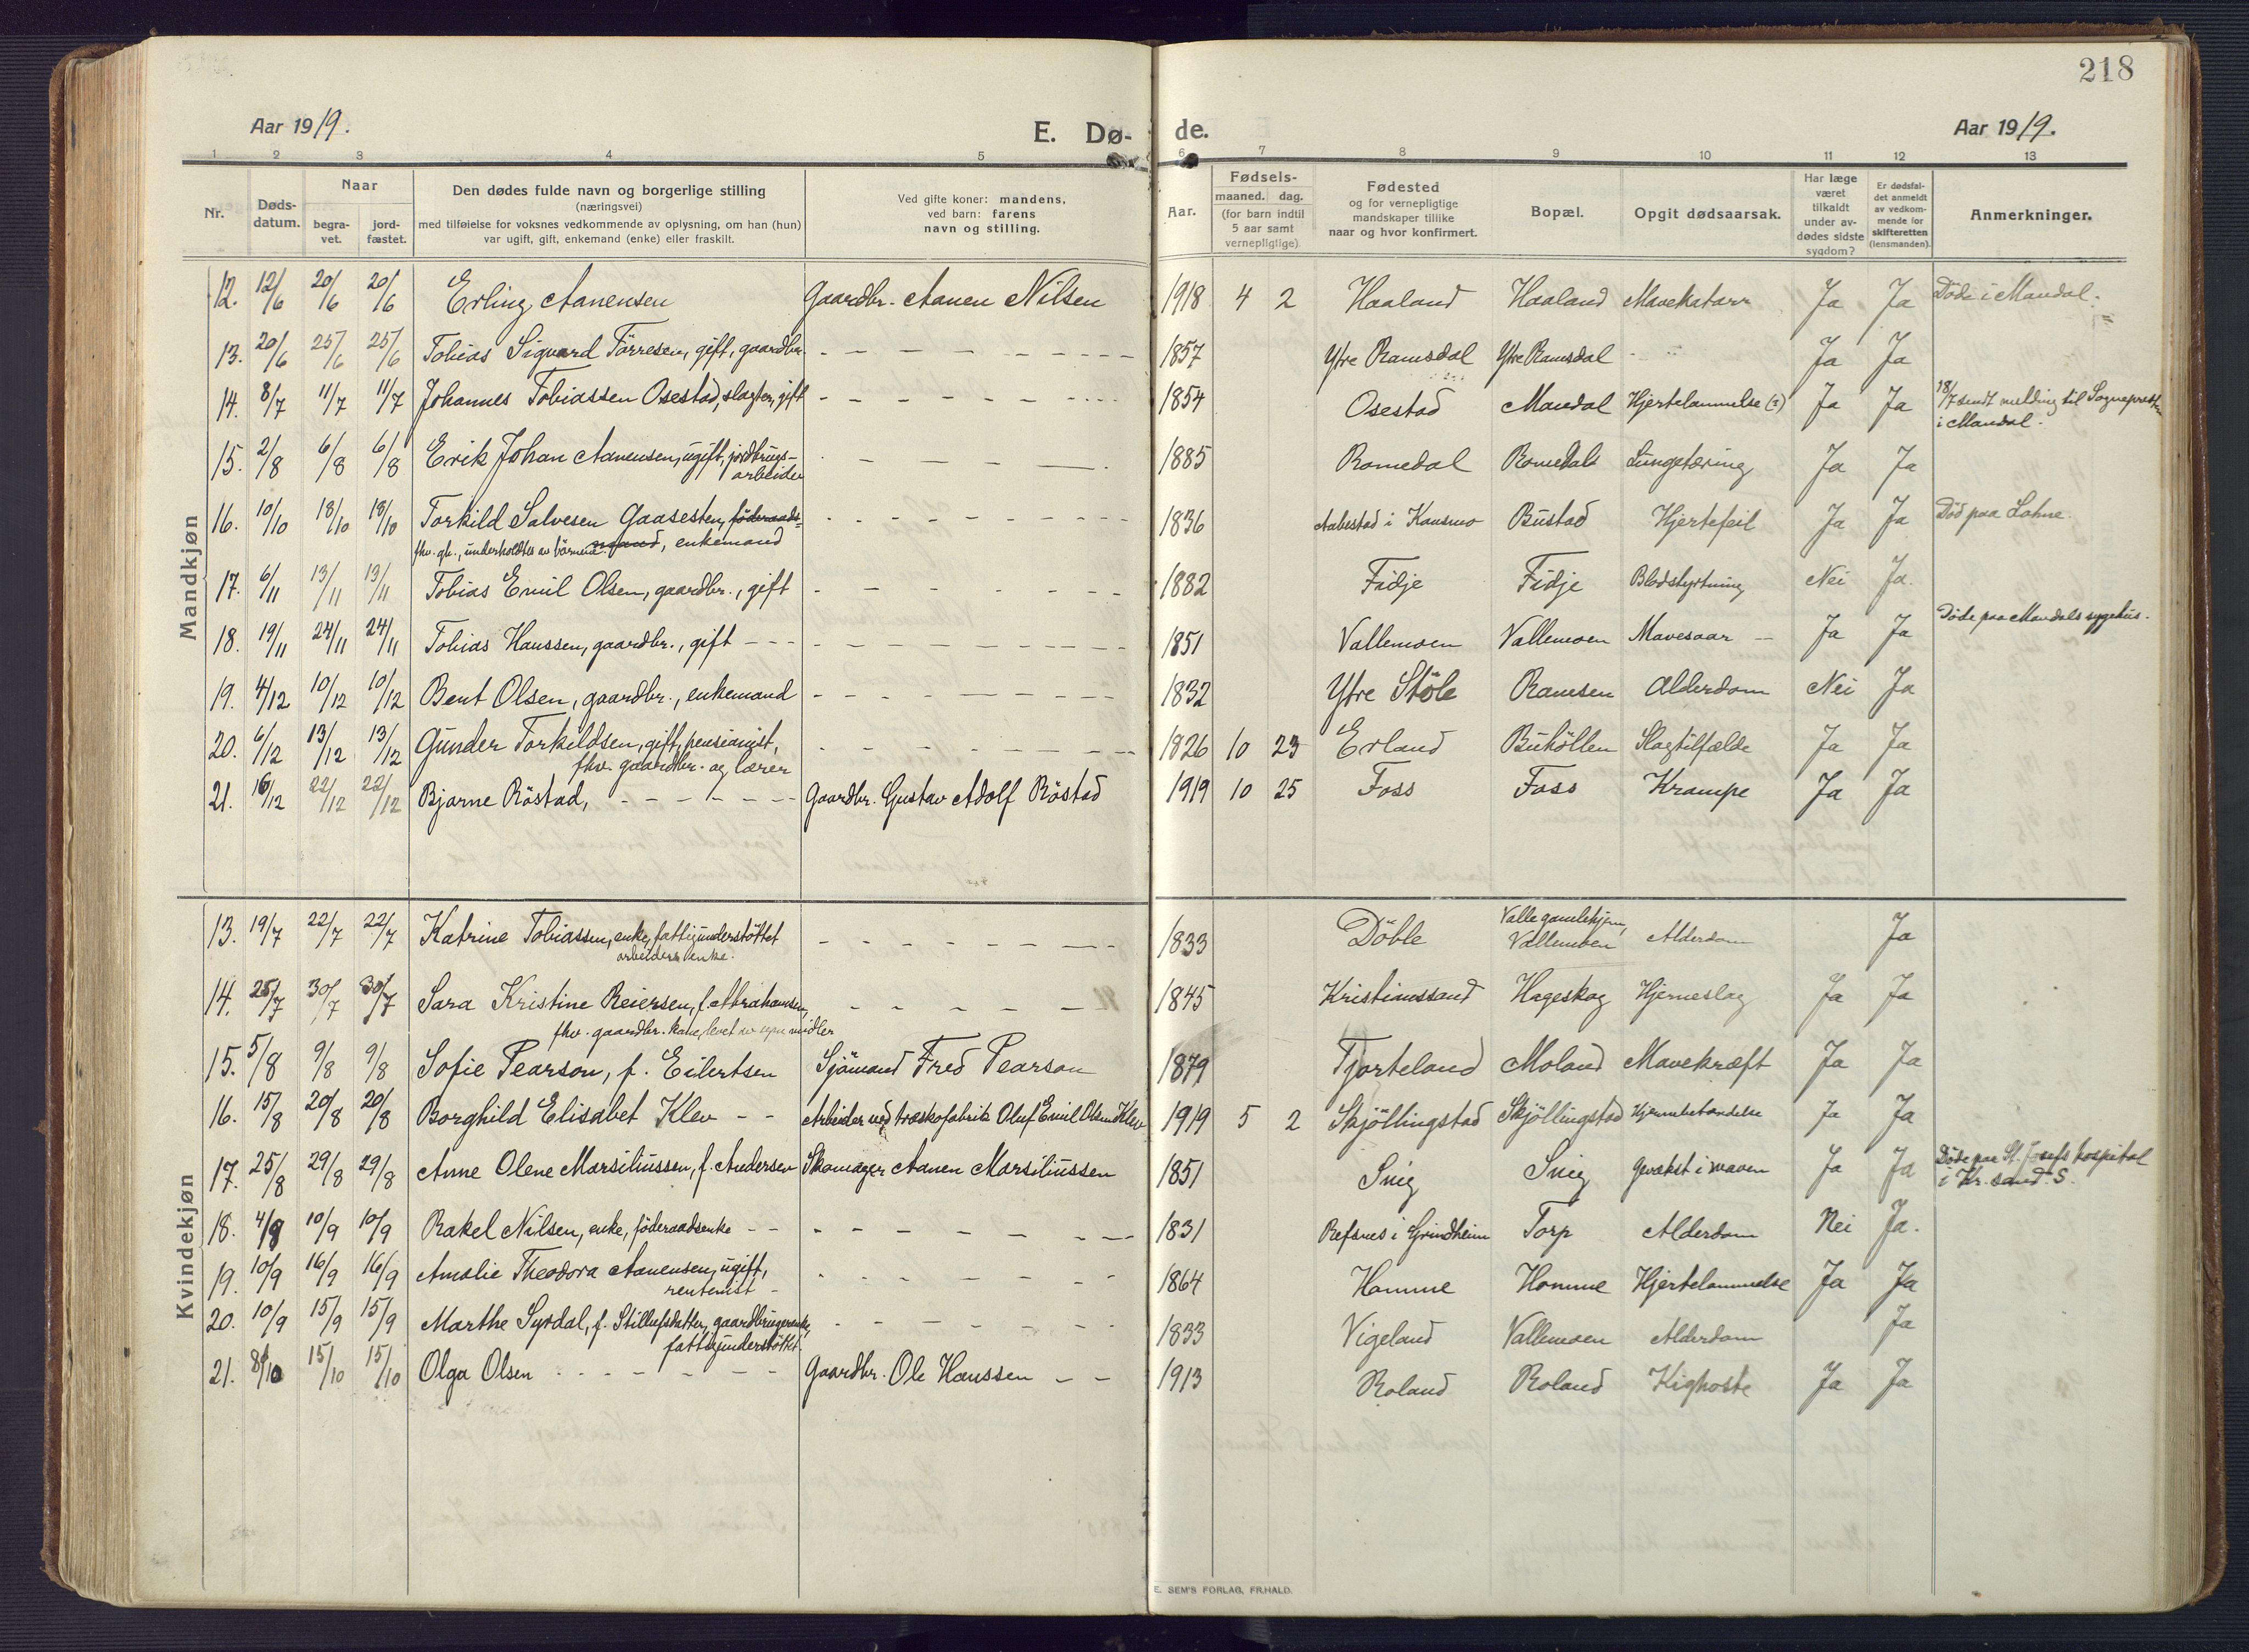 218
Aar 1919. E. Dø- de. Aar 1919.
1 2 3 4 5 6 7 8 9 10 11 12 13
Nr. Døds-datum. Naar begra-vet. jord-fæstet. Den dødes fulde navn og borgerlige stilling (næringsvei) med tilføielse for voksnes vedkommende av oplysning, om han (hun) var ugift, gift, enkemand (enke) eller fraskilt. Ved gifte koner: mandens, ved barn: farens navn og stilling. Aar. Fødsels- maaned. dag. (for barn indtil 5 aar samt vernepligtige) Fødested og for vernepligtige mandskaper tillike naar og hvor konfirmert. Bopæl. Opgit dødsaarsak. Har læge været tilkaldt under av-dødes sidste sygdom? Er dødsfal-det anmeldt av vedkom-mende for skifteretten (lensmanden). Anmerkninger.
Mandkjøn
12. 12/6 20/6 20/6 Erling Aanensen Gaardbr. Aanen Nilsen 1918 4 2 Haaland Haaland Mavekatarr Ja Ja Döde i Mandal.
13. 20/6 25/6 25/6 Tobias Sigvard Törresen, gift, gaardbr. 1857 Ytre Ramsdal Ytre Ramsdal - Ja Ja
14. 8/7 11/7 11/7 Johannes Tobiassen Osestad, slagter, gift 1854 Osestad Mandal Hjertelammelse (?) Ja Ja 18/7 sendt melding til Sogneprest
i Mandal.
15. 2/8 6/8 6/8 Erik Johan Aanensen, ugift, jordbrugs-
arbeider 1885 Romedal Romedal Lungetæring Ja Ja
16. 10/10 18/10 18/10 Torkild Salvesen Gaasesten, föderaads-
fhv. gb., underholdtes av börnene mand, enkemand 1836 Aabestad i Konsmo Bustad Hjertefeil Ja Ja Död paa Lohne.
17. 6/11 13/11 13/11 Tobias Emil Olsen, gaardbr., gift 1882 Fidje Fidje Blodstyrtning Nei Ja.
18. 19/11 24/11 24/11 Tobias Hanssen, gaardbr., gift 1851 Vallemoen Vallemoen Mavesaar Ja Ja Döde paa Mandals sygehus.
19. 4/12 10/12 10/12 Bent Olsen, gaardbr., enkemand 1832 Ytre Stöle Ramsen Alderdom Nei Ja
20. 6/12 13/12 13/12 Gunder Torkildsen, gift, pensionist,
fhv. gaardbr. og lærer 1826 10 23 Erland Buhöllen Slagtilfælde Ja Ja
21. 16/12 22/12 22/12 Bjarne Röstad, Gaardbr. Gustav Adolf Röstad 1919 10 25 Foss Foss Krampe Ja Ja
Kvindekjøn
13. 19/7 22/7 22/7 Katrine Tobiassen, enke, fattigunderstöttet
arbeiders enke. 1833 Döble Valle gamlehjem,
Vallemoen Alderdom Ja
14. 25/7 30/7 30/7 Sara Kristine Reiersen, f. Abrahamsen,
fhv. gaardbr. kone, levet av egne midler 1845 Kristianssand Hageskog Hjerneslag Ja Ja
15. 5/8 9/8 9/8 Sofie Pearson, f. Eilertsen Sjömand Fred Pearson 1879 Tjorteland Moland Mavekræft Ja Ja
16. 15/8 20/8 20/8 Borghild Elisabet Klev Arbeider ved træskofabrik Oluf Emil Olsen Klev 1919 5 2 Skjöllingstad Skjöllingstad Hjernebetændelse Ja Ja
17. 25/8 29/8 29/8 Anne Olene Marsiliussen, f. Andersen Skomager Aanen Marsiliussen 1851 Snig Snig Gevækst i maven Ja Ja Döde paa St. Josefs hospital
i Kr.sand. S.
18. 4/9 10/9 10/9 Rakel Nilsen, enke, föderaadsenke 1831 Refsnes i Grindheim Torp Alderdom Nei Ja.
19. 10/9 16/9 16/9 Amalie Theodora Aanensen, ugift,
rentenist 1864 Homme Homme Hjertelammelse Ja Ja
20. 10/9 15/9 15/9 Marthe Syrdal, f. Stillufsdatter, gaardbrugerenke,
fattigunderstöttet. 1833 Vigeland Vallemoen Alderdom Ja
21. 8/10 15/10 15/10 Olga Olsen Gaardbr. Ole Hanssen 1913 Roland Roland Kighoste Ja Ja
E. SEM'S FORLAG, FR.HALD.